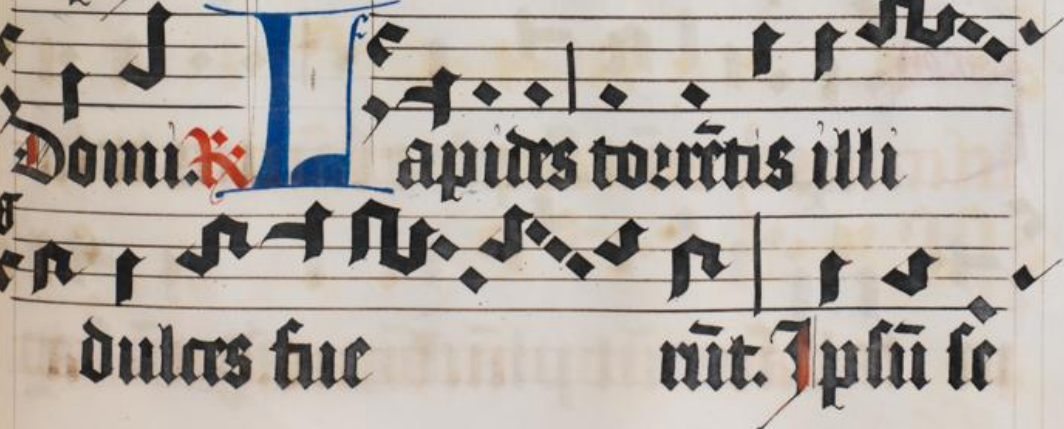 Domi. ℟ Lapides torrẽtis illi
dulces fue rũt. Ipsũ se